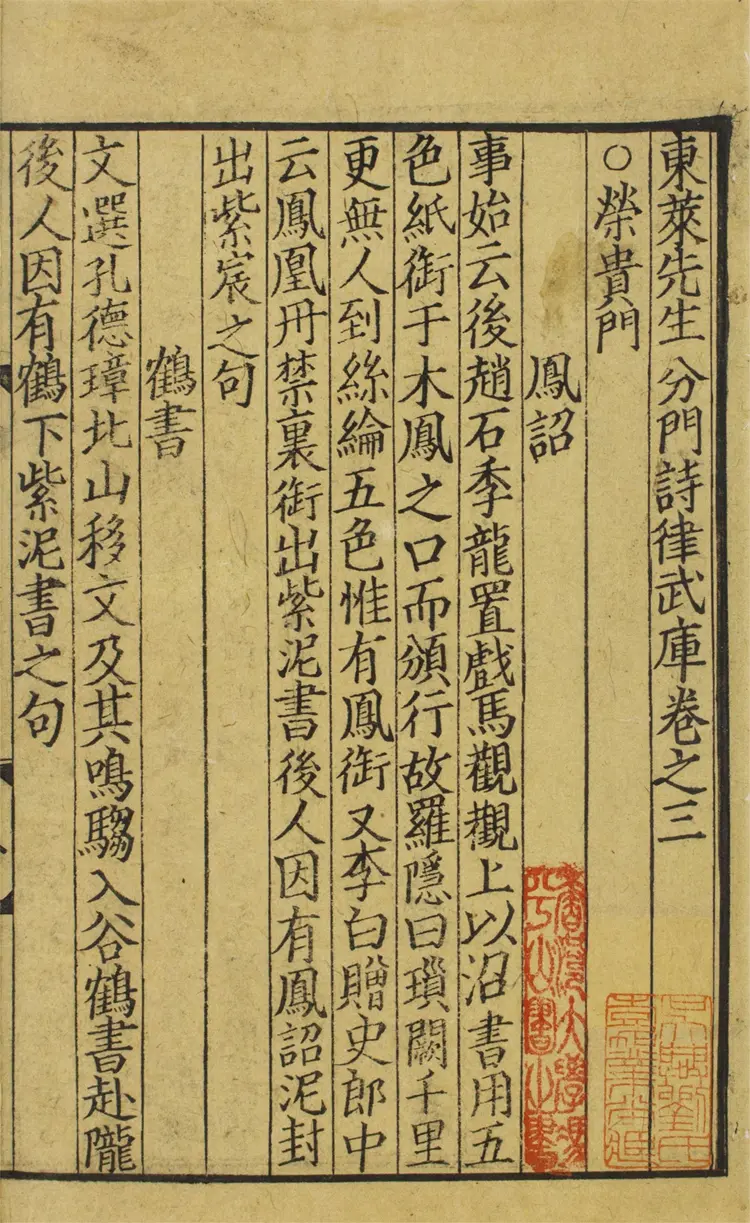 東萊先生分門詩律武庫卷之三
○榮貴門
鳳詔
事始云後趙石季龍置戲馬觀觀上以沼書用五
色紙銜于木鳳之口而頒行故羅隱曰瑣闕千里
更無人到絲綸五色惟有鳳銜又李白贈史郎中
云鳳凰丹禁裏銜出紫泥書後人因有鳳詔泥封
出紫宸之句
鶴書
文選孔德璋北山移文及其鳴騶入谷鶴書赴隴
後人因有鶴下紫泥書之句